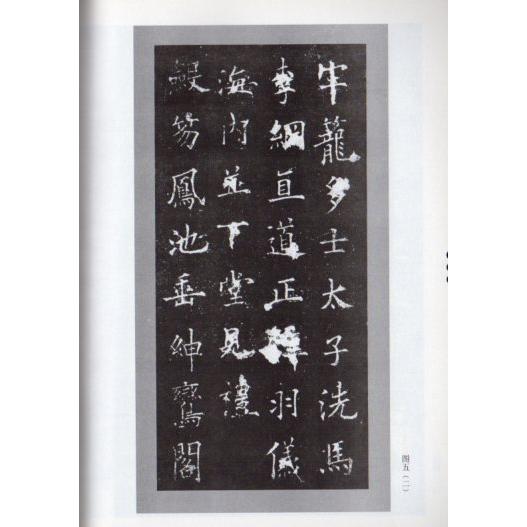 牢籠多士太子洗馬
李綱直道正 羽儀
海内並下堂見禮
笏鳳池垂紳鸞閣
图五(二)